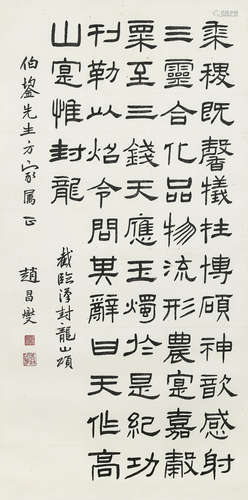 黍稷既馨犧牲博碩神歆感射
三靈合化品物流形農寔嘉穀
粟至三錢天應玉燭於是紀功
刊勒以炤令問其辭曰天作高
山寔惟封龍
截臨漢封龍山頌
伯鋆先生方家屬正
趙昌燮